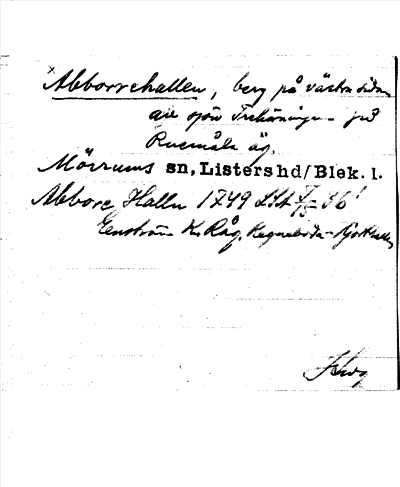 Abborrehallen, berg på västra sidan
av sjön Trehörningen på
Ruemåla äg.
Mörrums sn, Listers hd/Blek. l.
Abbore Hallu 1749 LSA
Enström K. Råg. Regnebrda - Kjorthallen